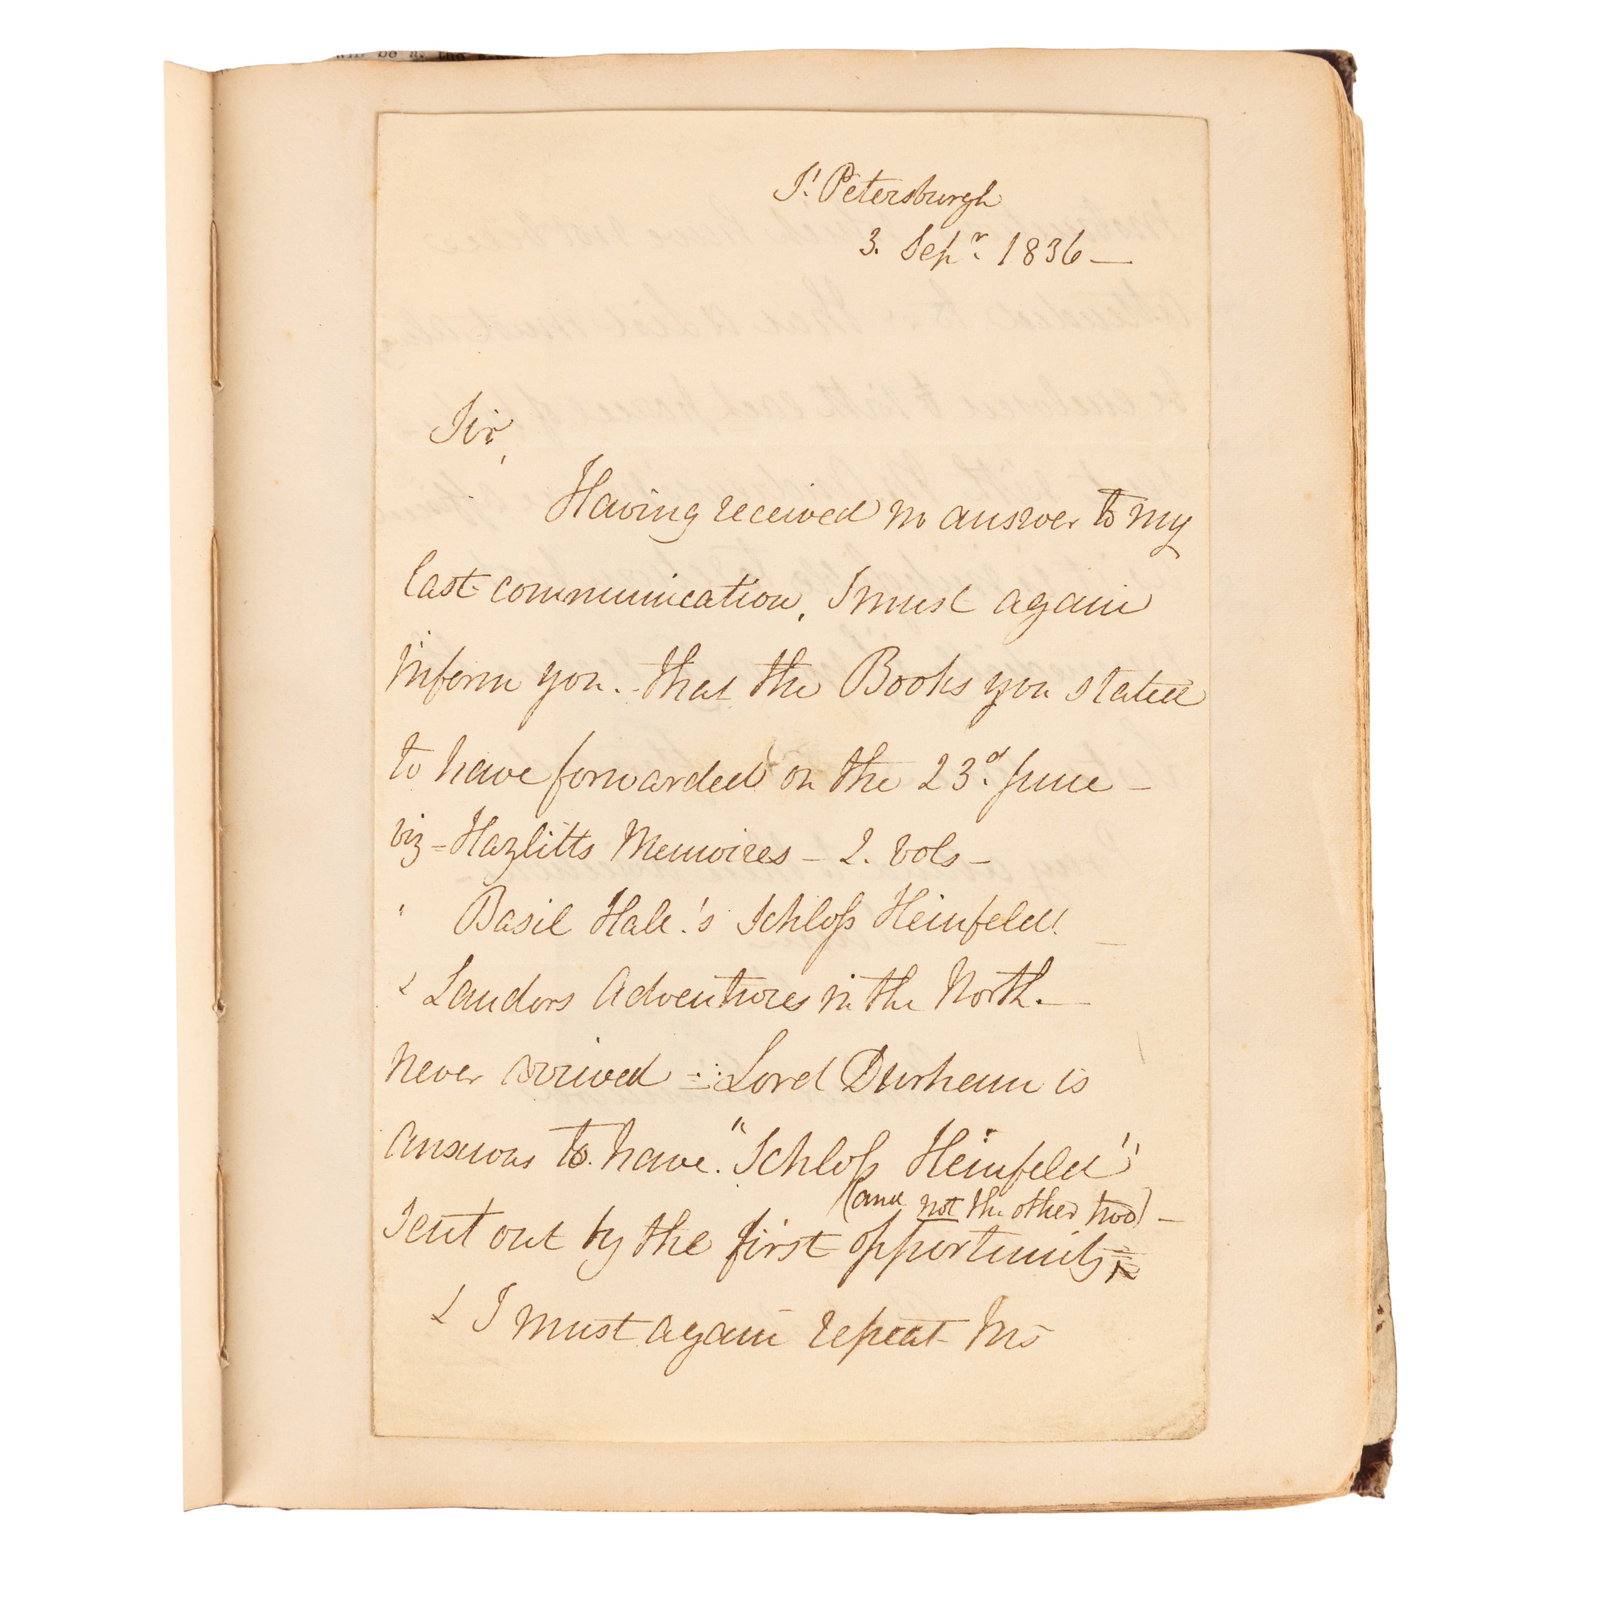 St. Petersburgh
3. Sepr. 1836 —
Sir,
Having received no answer to my
last communication, I must again
inform you. that the Books you stated
to have forwarded on the 23d. June —
viz - Hazlitts Memoires — 2. vols —
" Basil Hall's Schloss Heinfeld! —
& Landors Adventures in the North. —
never arrived — Lord Durham is
anxious to have "Schloss Heinfeld"
(and not the other two) —
sent out by the first opportunity
& I must again repeat my